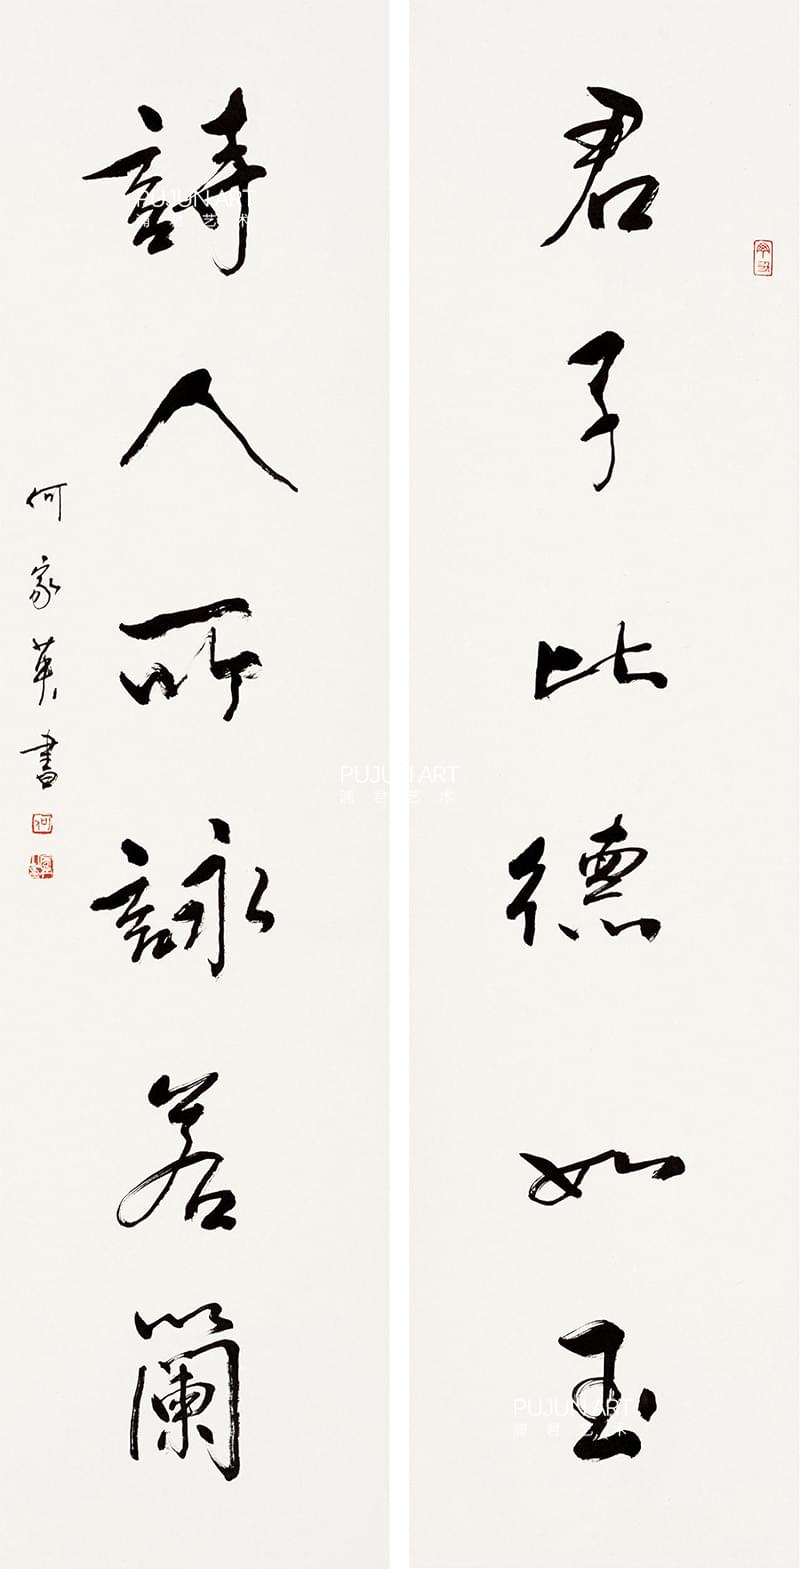 君子比德如玉
詩人所詠若蘭
何家英書
PUJUN ART
浦君艺术
PUJUN ART
浦君艺术
PUJUN ART
浦君艺术